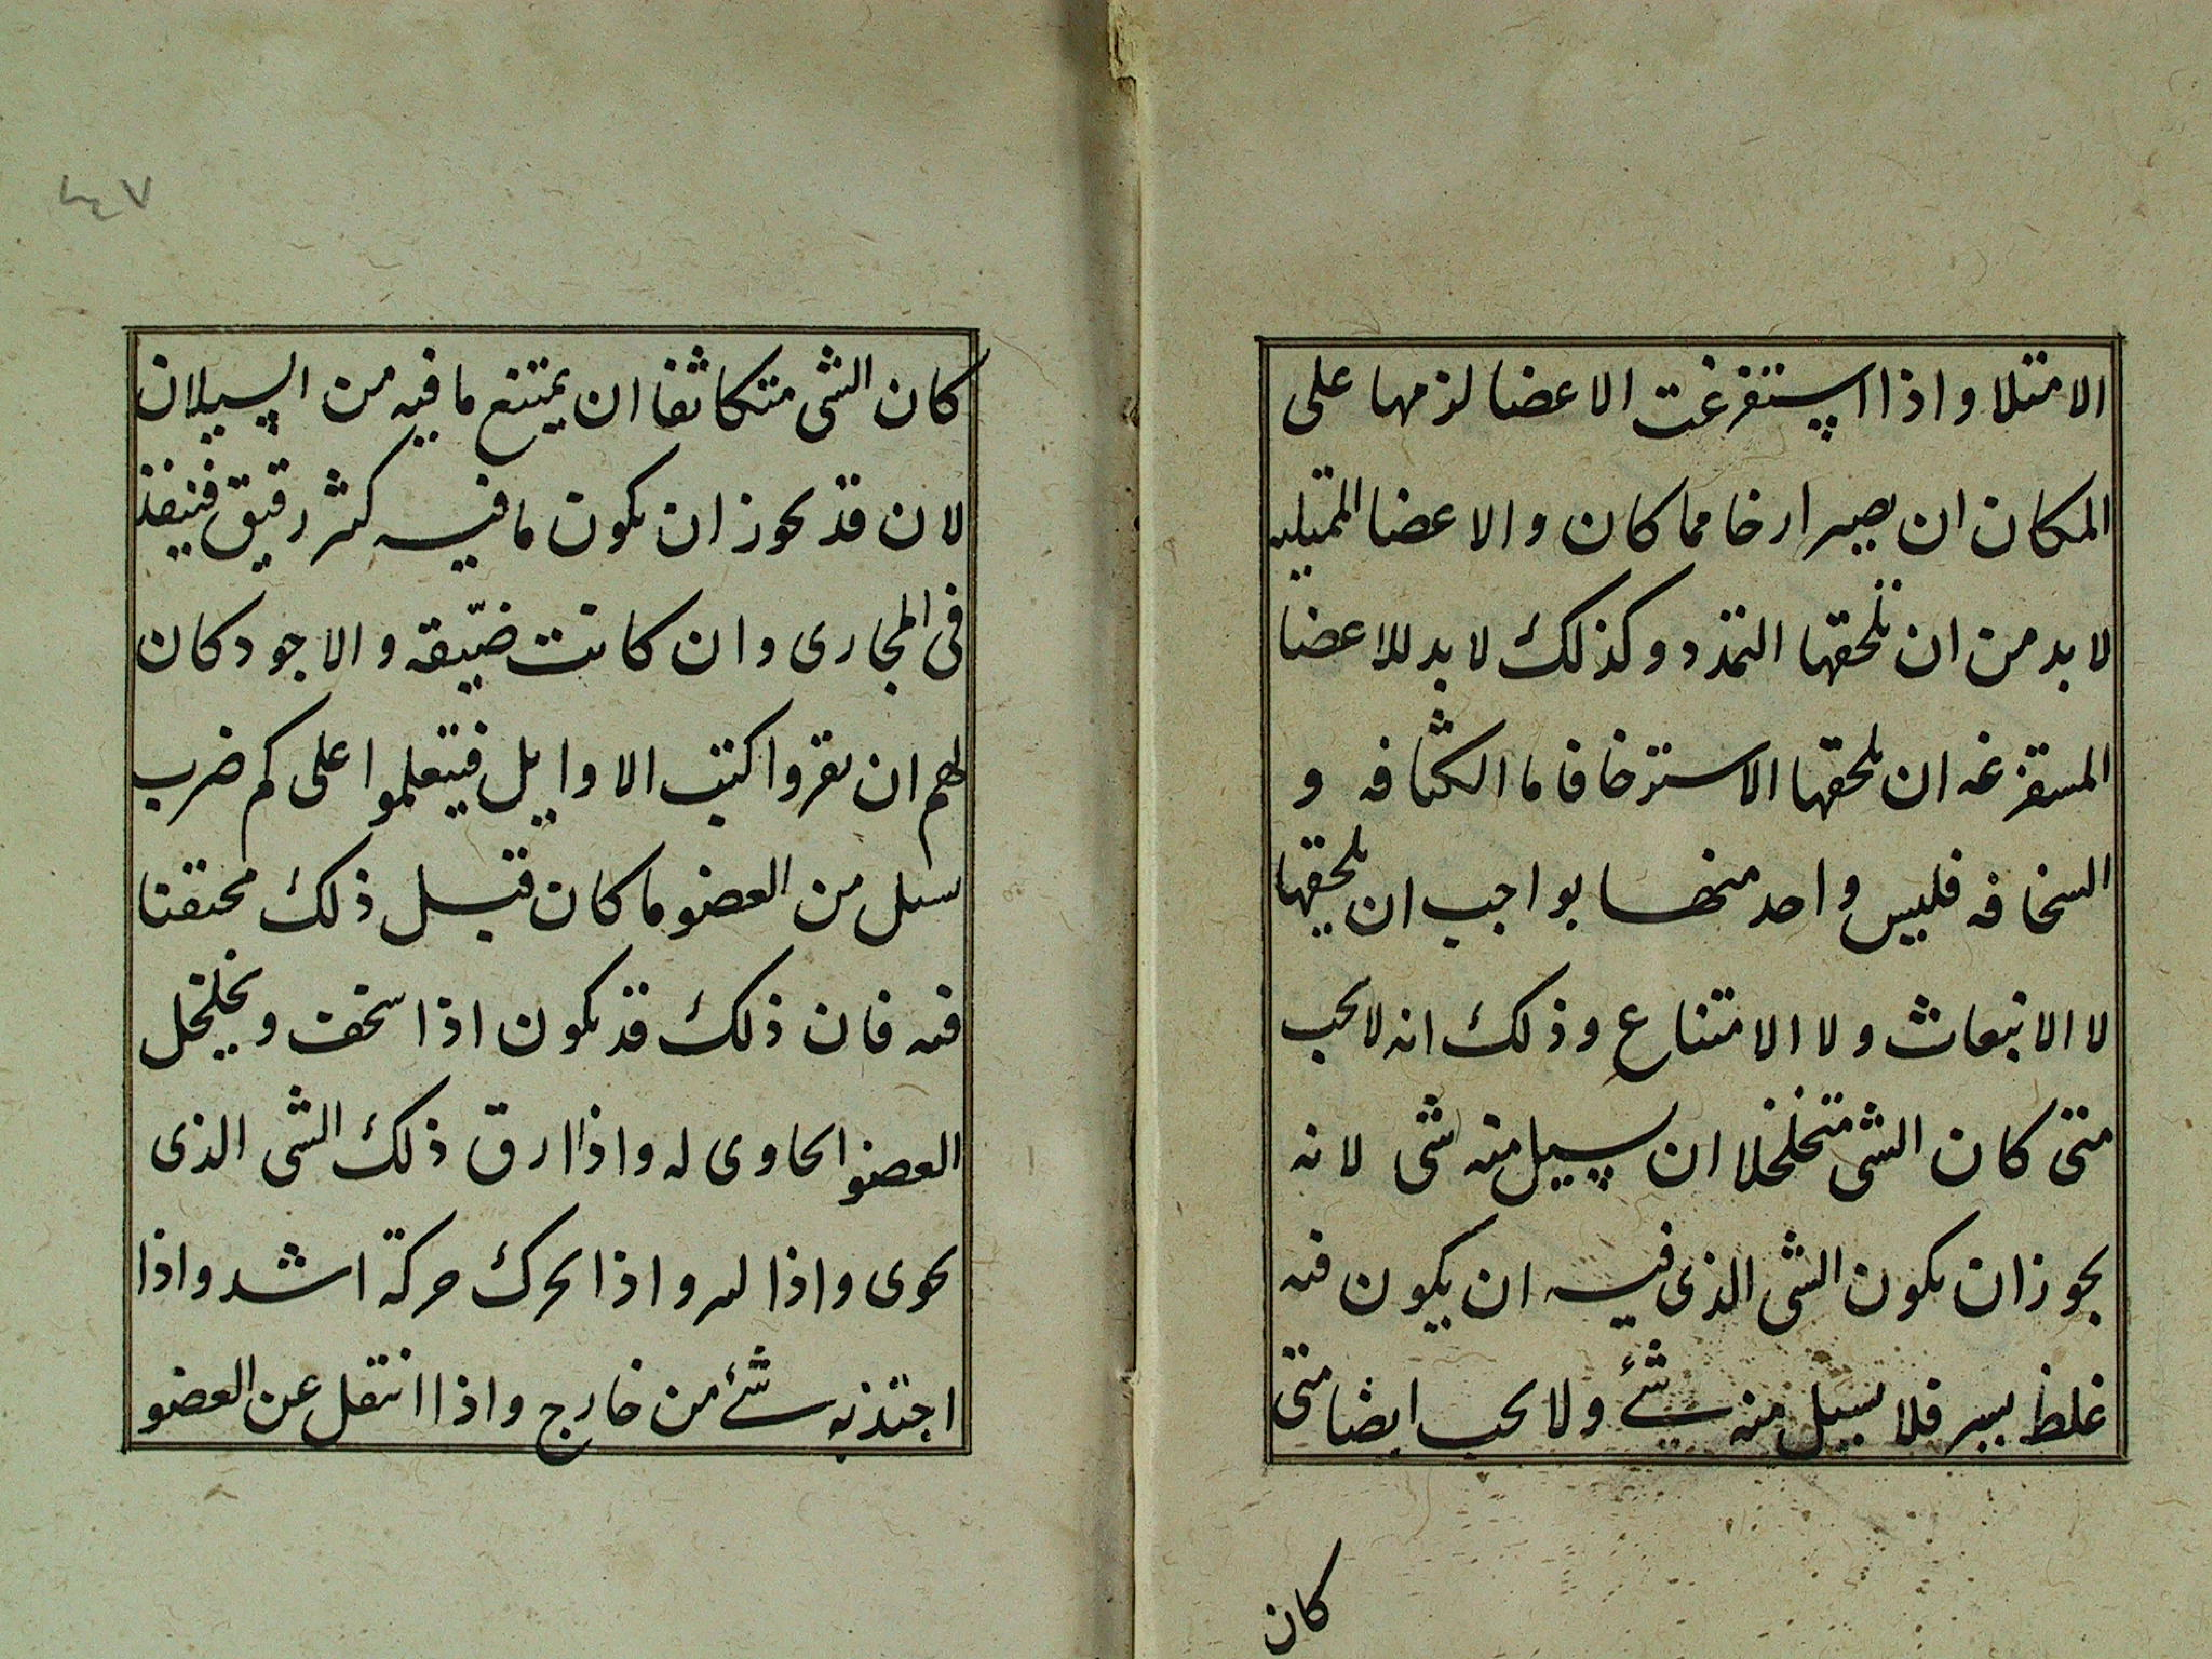 الامتلا واذا استفرغت الاعضا لزمها على
المكان ان يصير ارخا مما كان والاعضا الممتليه
لا بد من ان تلحقها التمدد وكذلك لا بد للاعضا
المستفرغه ان يلحقها الاسترخا فاما الكثافه و
السخافه فليس واحد منهما بواجب ان يلحقها
لا الانبعاث ولا الامتناع وذلك انه لا يجب
متى كان الشى متخلخلا ان يسيل منه شى لانه
يجوز ان يكون الشى الذى فيه ان يكون فيه
غلظ يسير فلا يسيل منه شئ ولا يجب ايضا متى
كان
٢٤٧
كان الشى متكاثفا ان يمتنع ما فيه من السيلان
لان قد يجوز ان يكون ما فيه كثر رقيق فينفذ
فى المجارى وان كانت ضيّقه والاجود كان
لهم ان يقروا كتب الاوايل فيتعلموا على كم ضرب
يسيل من العضو ما كان قبل ذلك محتقنا
فيه فان ذلك قد يكون اذا سخف ويخلخل
العضو الحاوى له واذا ارق ذلك الشى الذى
يحوى واذا واذا تحرك حركة اشد واذا
اجتذبه شئ من خارج واذا انتقل عن العضو